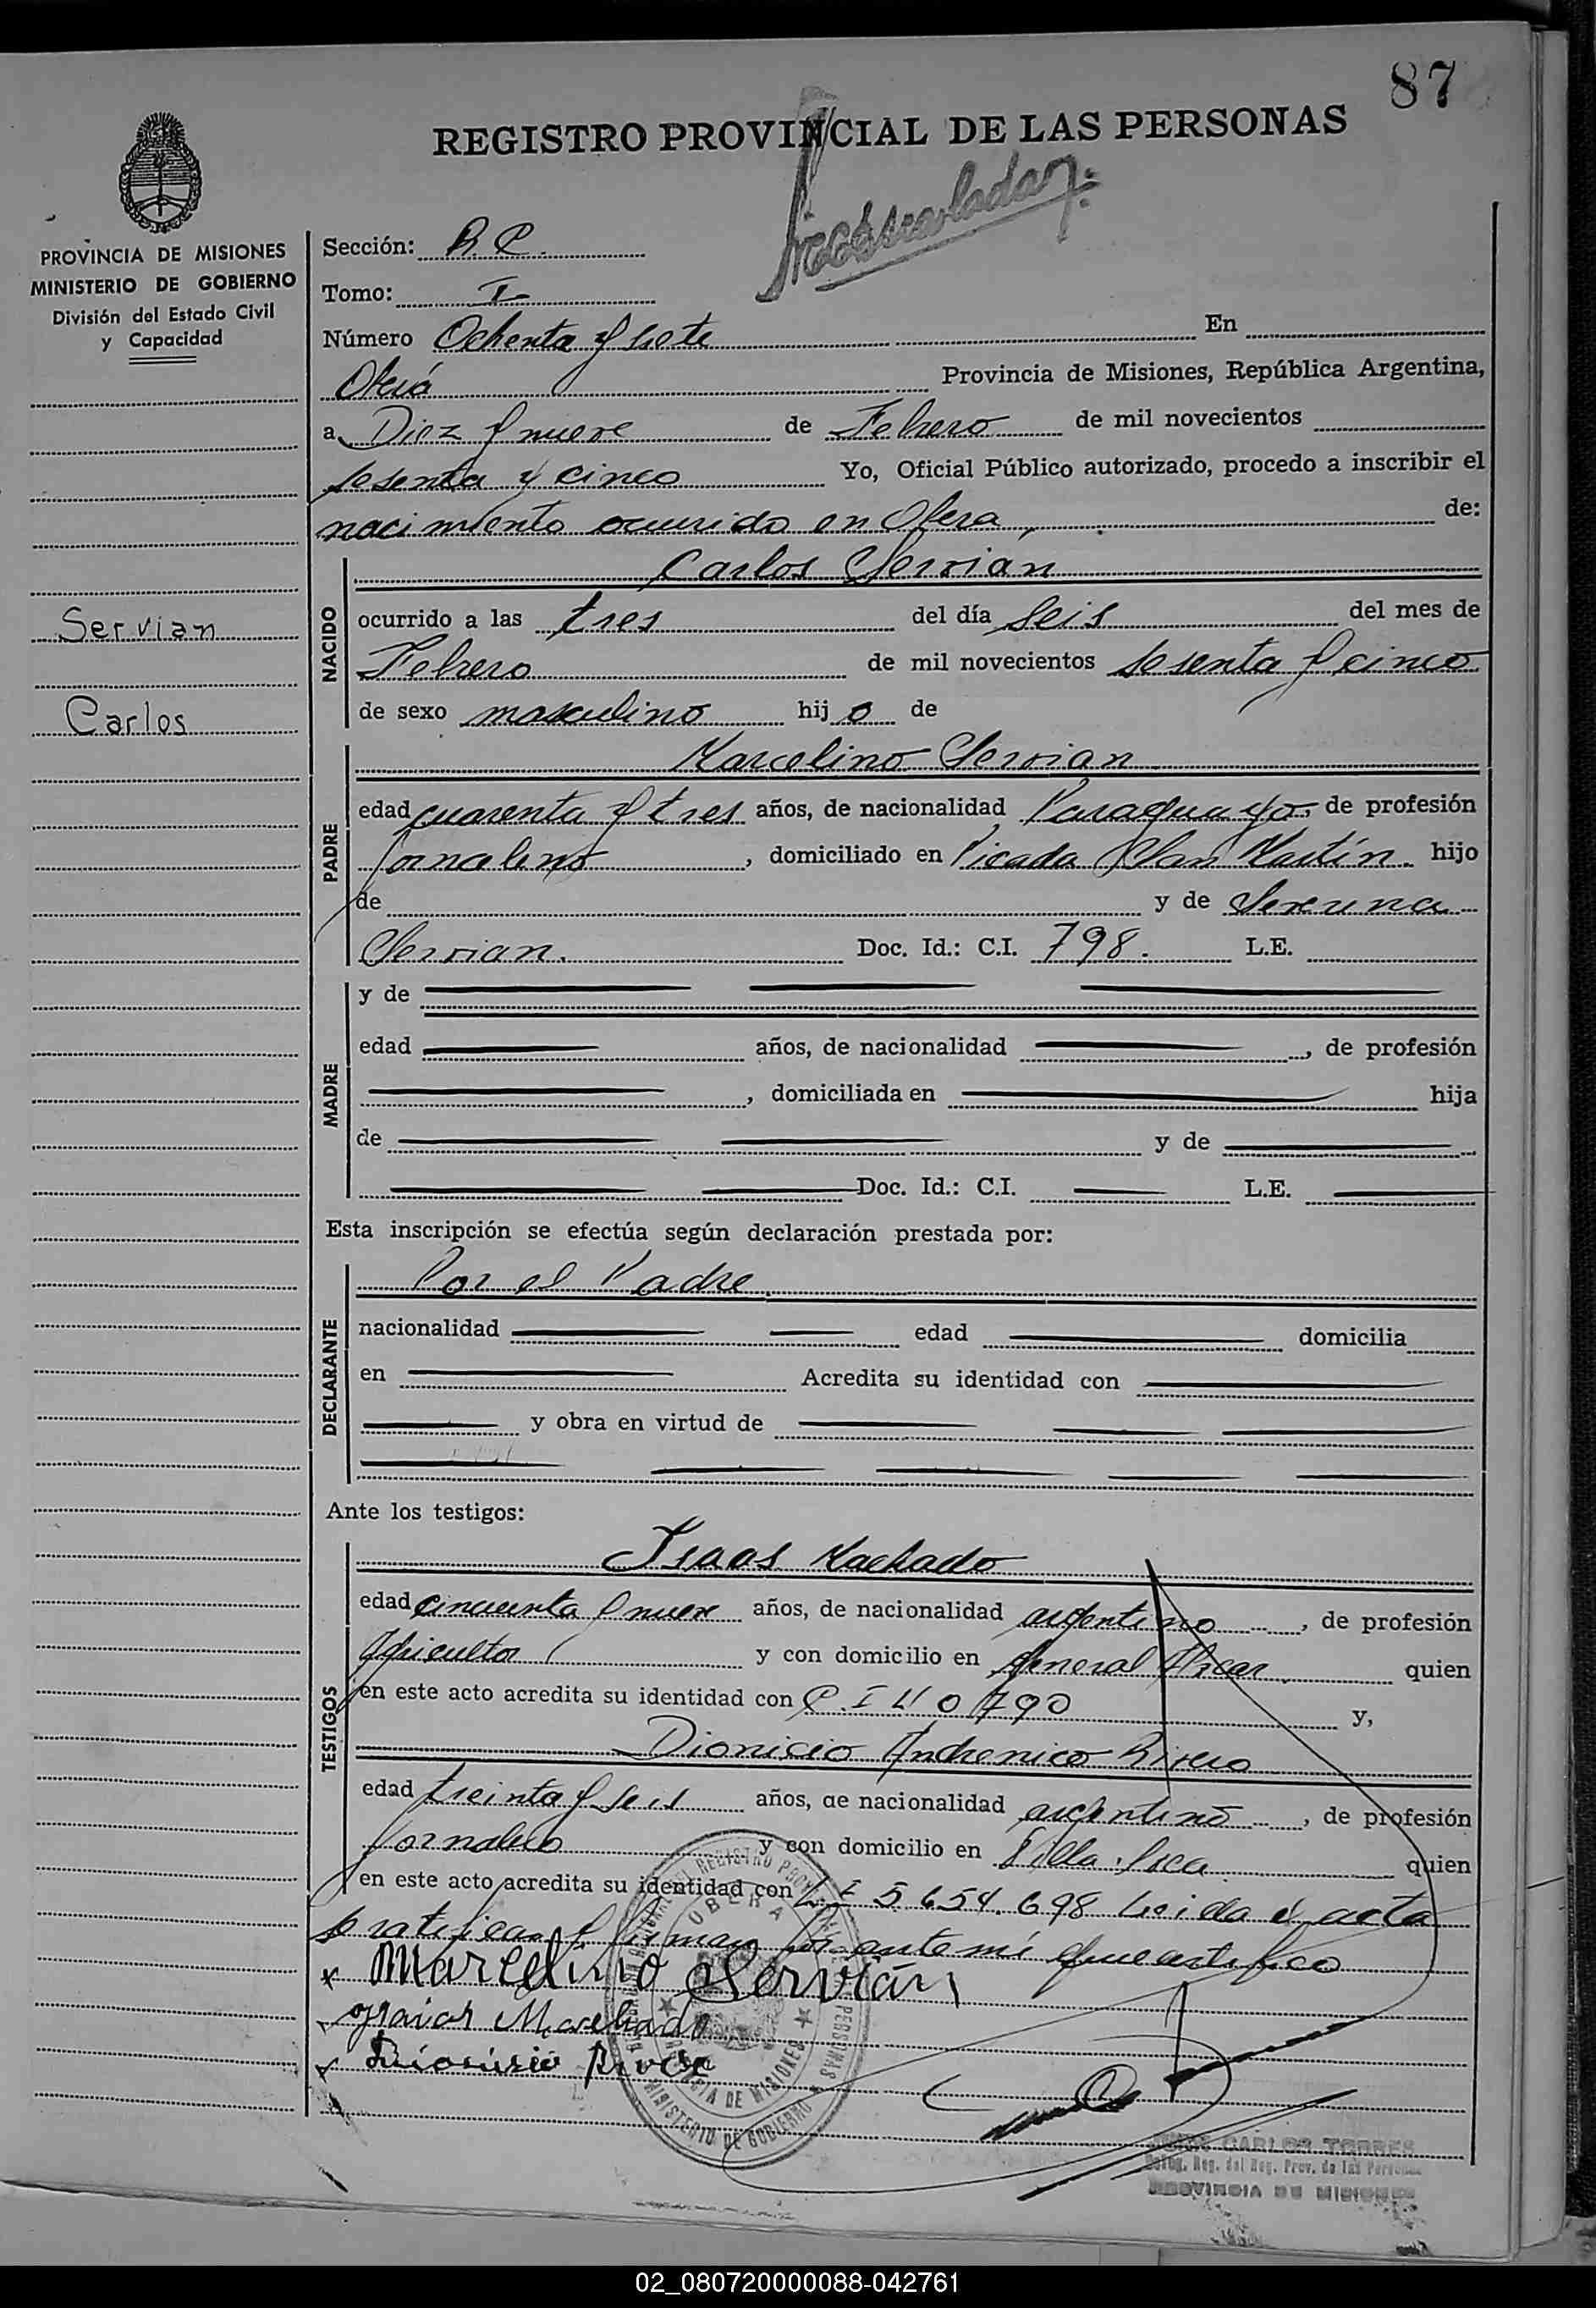 87
REGISTRO PROVINCIAL DE LAS PERSONAS
PROVINCIA DE MISIONES
MINISTERIO DE GOBIERNO
División del Estado Civil
y Capacidad
Servian
Carlos
Sección: R. P.
Tomo: I
Número Ochenta y siete En
Oberá Provincia de Misiones, República Argentina,
a Diez y nueve de Febrero de mil novecientos
sesenta y cinco Yo, Oficial Público autorizado, procedo a inscribir el
nacimiento ocurrido en Obera, de:
NACIDO
Carlos Servian
ocurrido a las tres del día seis del mes de
Febrero de mil novecientos sesenta y cinco
de sexo masculino hijo de
PADRE
Marcelino Servian
edad cuarenta y tres años, de nacionalidad Paraguayo, de profesión
Jornalero, domiciliado en Picada San Martín. hijo
de y de
Servian. Doc. Id.: C.I. 798. L.E.
MADRE
y de
edad años, de nacionalidad , de profesión
, domiciliada en hija
de y de
Doc. Id.: C.I. L.E.
Esta inscripción se efectúa según declaración prestada por:
DECLARANTE
Por el Padre
nacionalidad edad domicilia
en Acredita su identidad con
y obra en virtud de
Ante los testigos:
TESTIGOS
Isaas Machado
edad cincuenta y nueve años, de nacionalidad argentino, de profesión
Agricultor y con domicilio en General Alvear quien
en este acto acredita su identidad con C.I 40790 y,
Dionicio Andronico Rivero
edad treinta y seis años, de nacionalidad argentino, de profesión
Jornalero y con domicilio en Villa quien
en este acto acredita su identidad con L E 5.654.698 Leida el acta
se ratifican y firman por ante mi que certifico
x Marcelino Servián
Machado
x Rivero
OBERA
PROVINCIA DE MISIONES
MINISTERIO DE GOBIERNO
CARLOS TORRES
Deleg. Reg. del Reg. Prov. de las Personas
PROVINCIA DE MISIONES
02_080720000088-042761